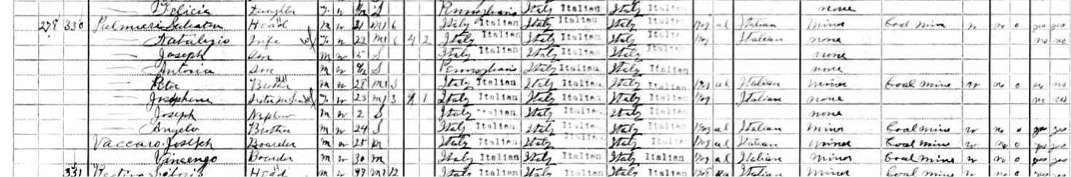 Felicia Daughter F W S Pennsylvania Italy Italian Italy Italian none
278 330 Palmieri Salvatore Head M W M1 6 Italy Italian Italy Italian Italy Italian al Italian Miner Coal Mine W no 0 yes yes
Wife F W M1 6 4 2 Italy Italian Italy Italian Italy Italian Italian none no no
Joseph Son M W 5 S Italy Italy Italian Italy Italian none
Antonio Son M W S Pennsylvania Italy Italian Italy Italian none
Peter Brother M W 28 M1 3 Italy Italian Italy Italian Italy Italian al Italian Miner Coal Mine W no 0 no no
Josephine F W 23 M1 3 1 1 Italy Italian Italy Italian Italy Italian Italian none yes yes
Joseph Nephew M W 2 S Italy Italian Italy Italian Italy Italian none
Angelo Brother M W 24 S Italy Italian Italy Italian Italy Italian al Italian Miner Coal Mine W no 0 yes yes
Vaccaro Joseph Boarder M W 25 Italy Italian Italy Italian Italy Italian al Italian Miner Coal Mine W no 0 yes yes
Vincenzo Boarder M W 30 M Italy Italian Italy Italian Italy Italian al Italian Miner Coal Mine W no 0 yes yes
331 Head M W M1 12 Italy Italian Italy Italian Italy Italian Italian Miner Coal Mine W no 0 yes yes